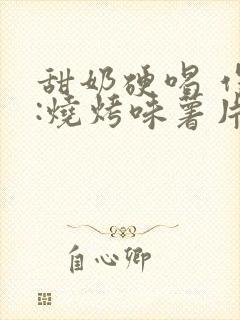 甜奶硬唱
:燒烤味薯片
自心卿